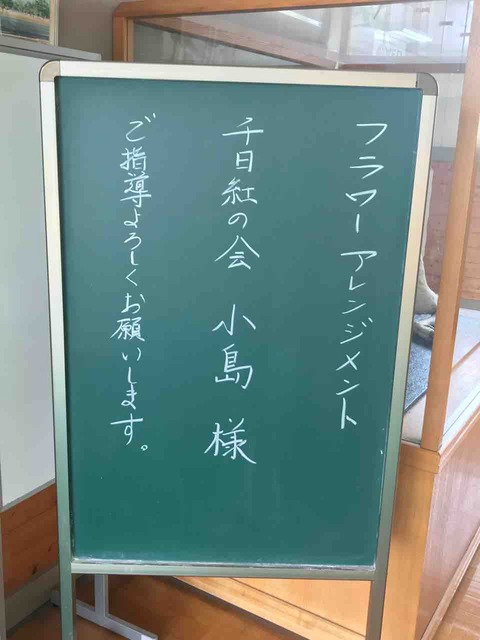 フラワーアレンジメント
千日紅の会 小島 様
ご指導よろしくお願いします。